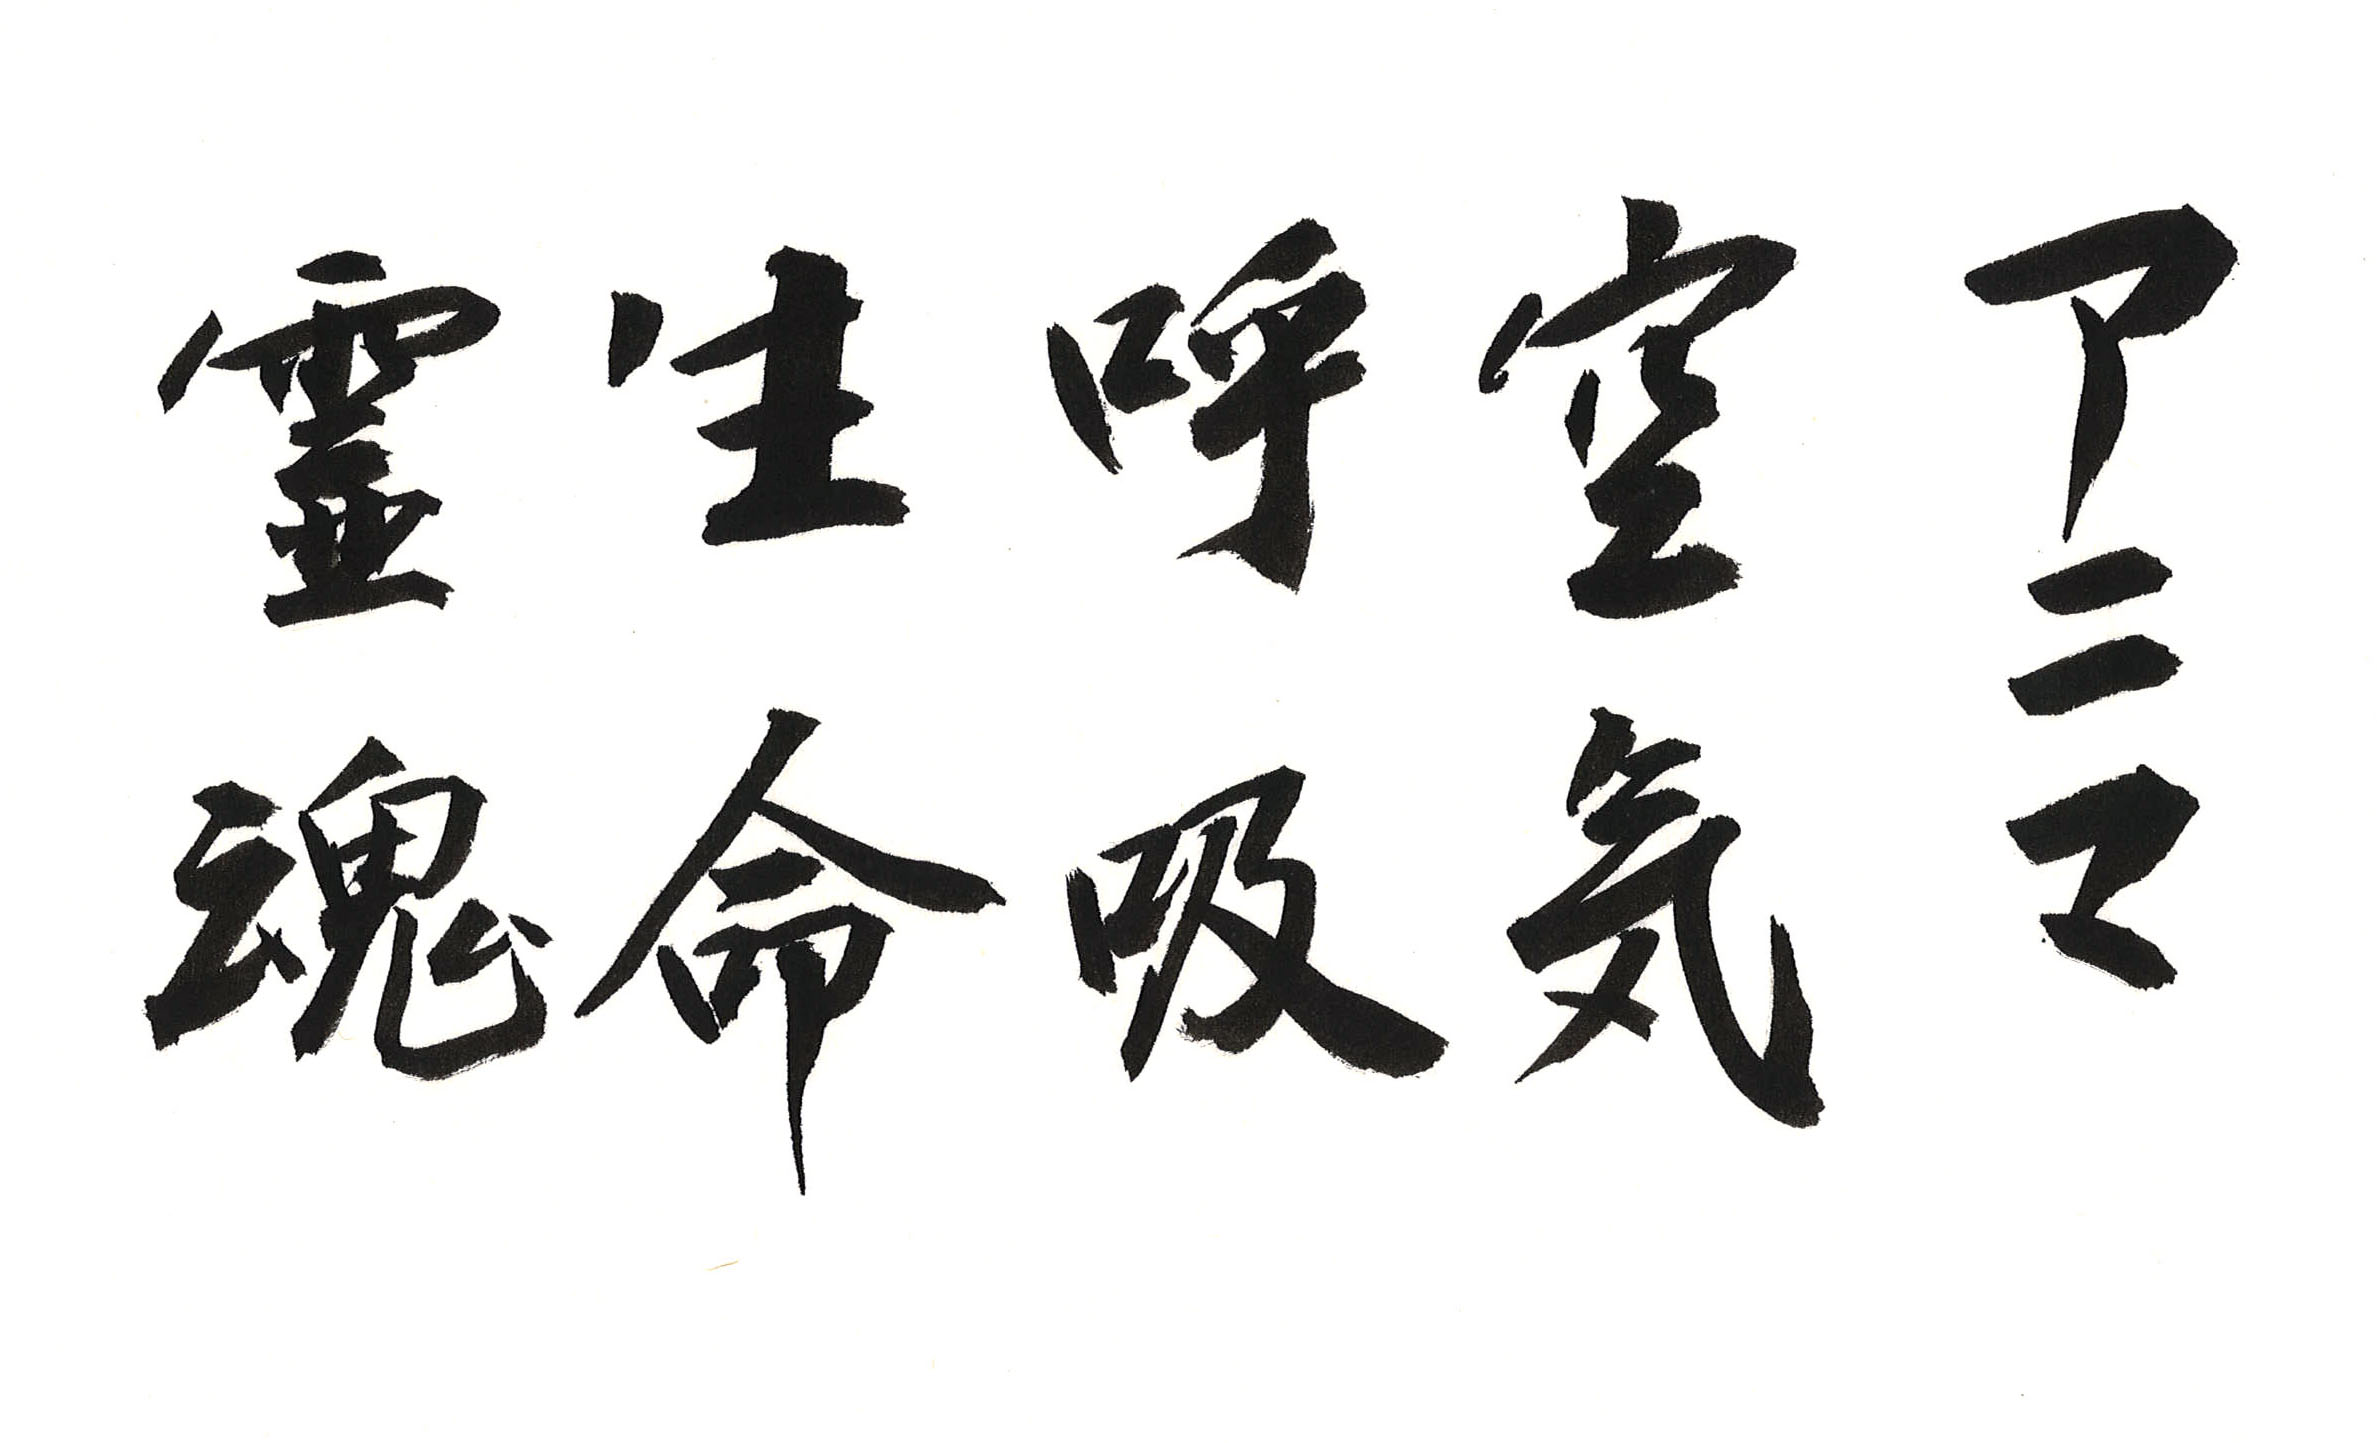 アニマ
空気
呼吸
生命
霊魂